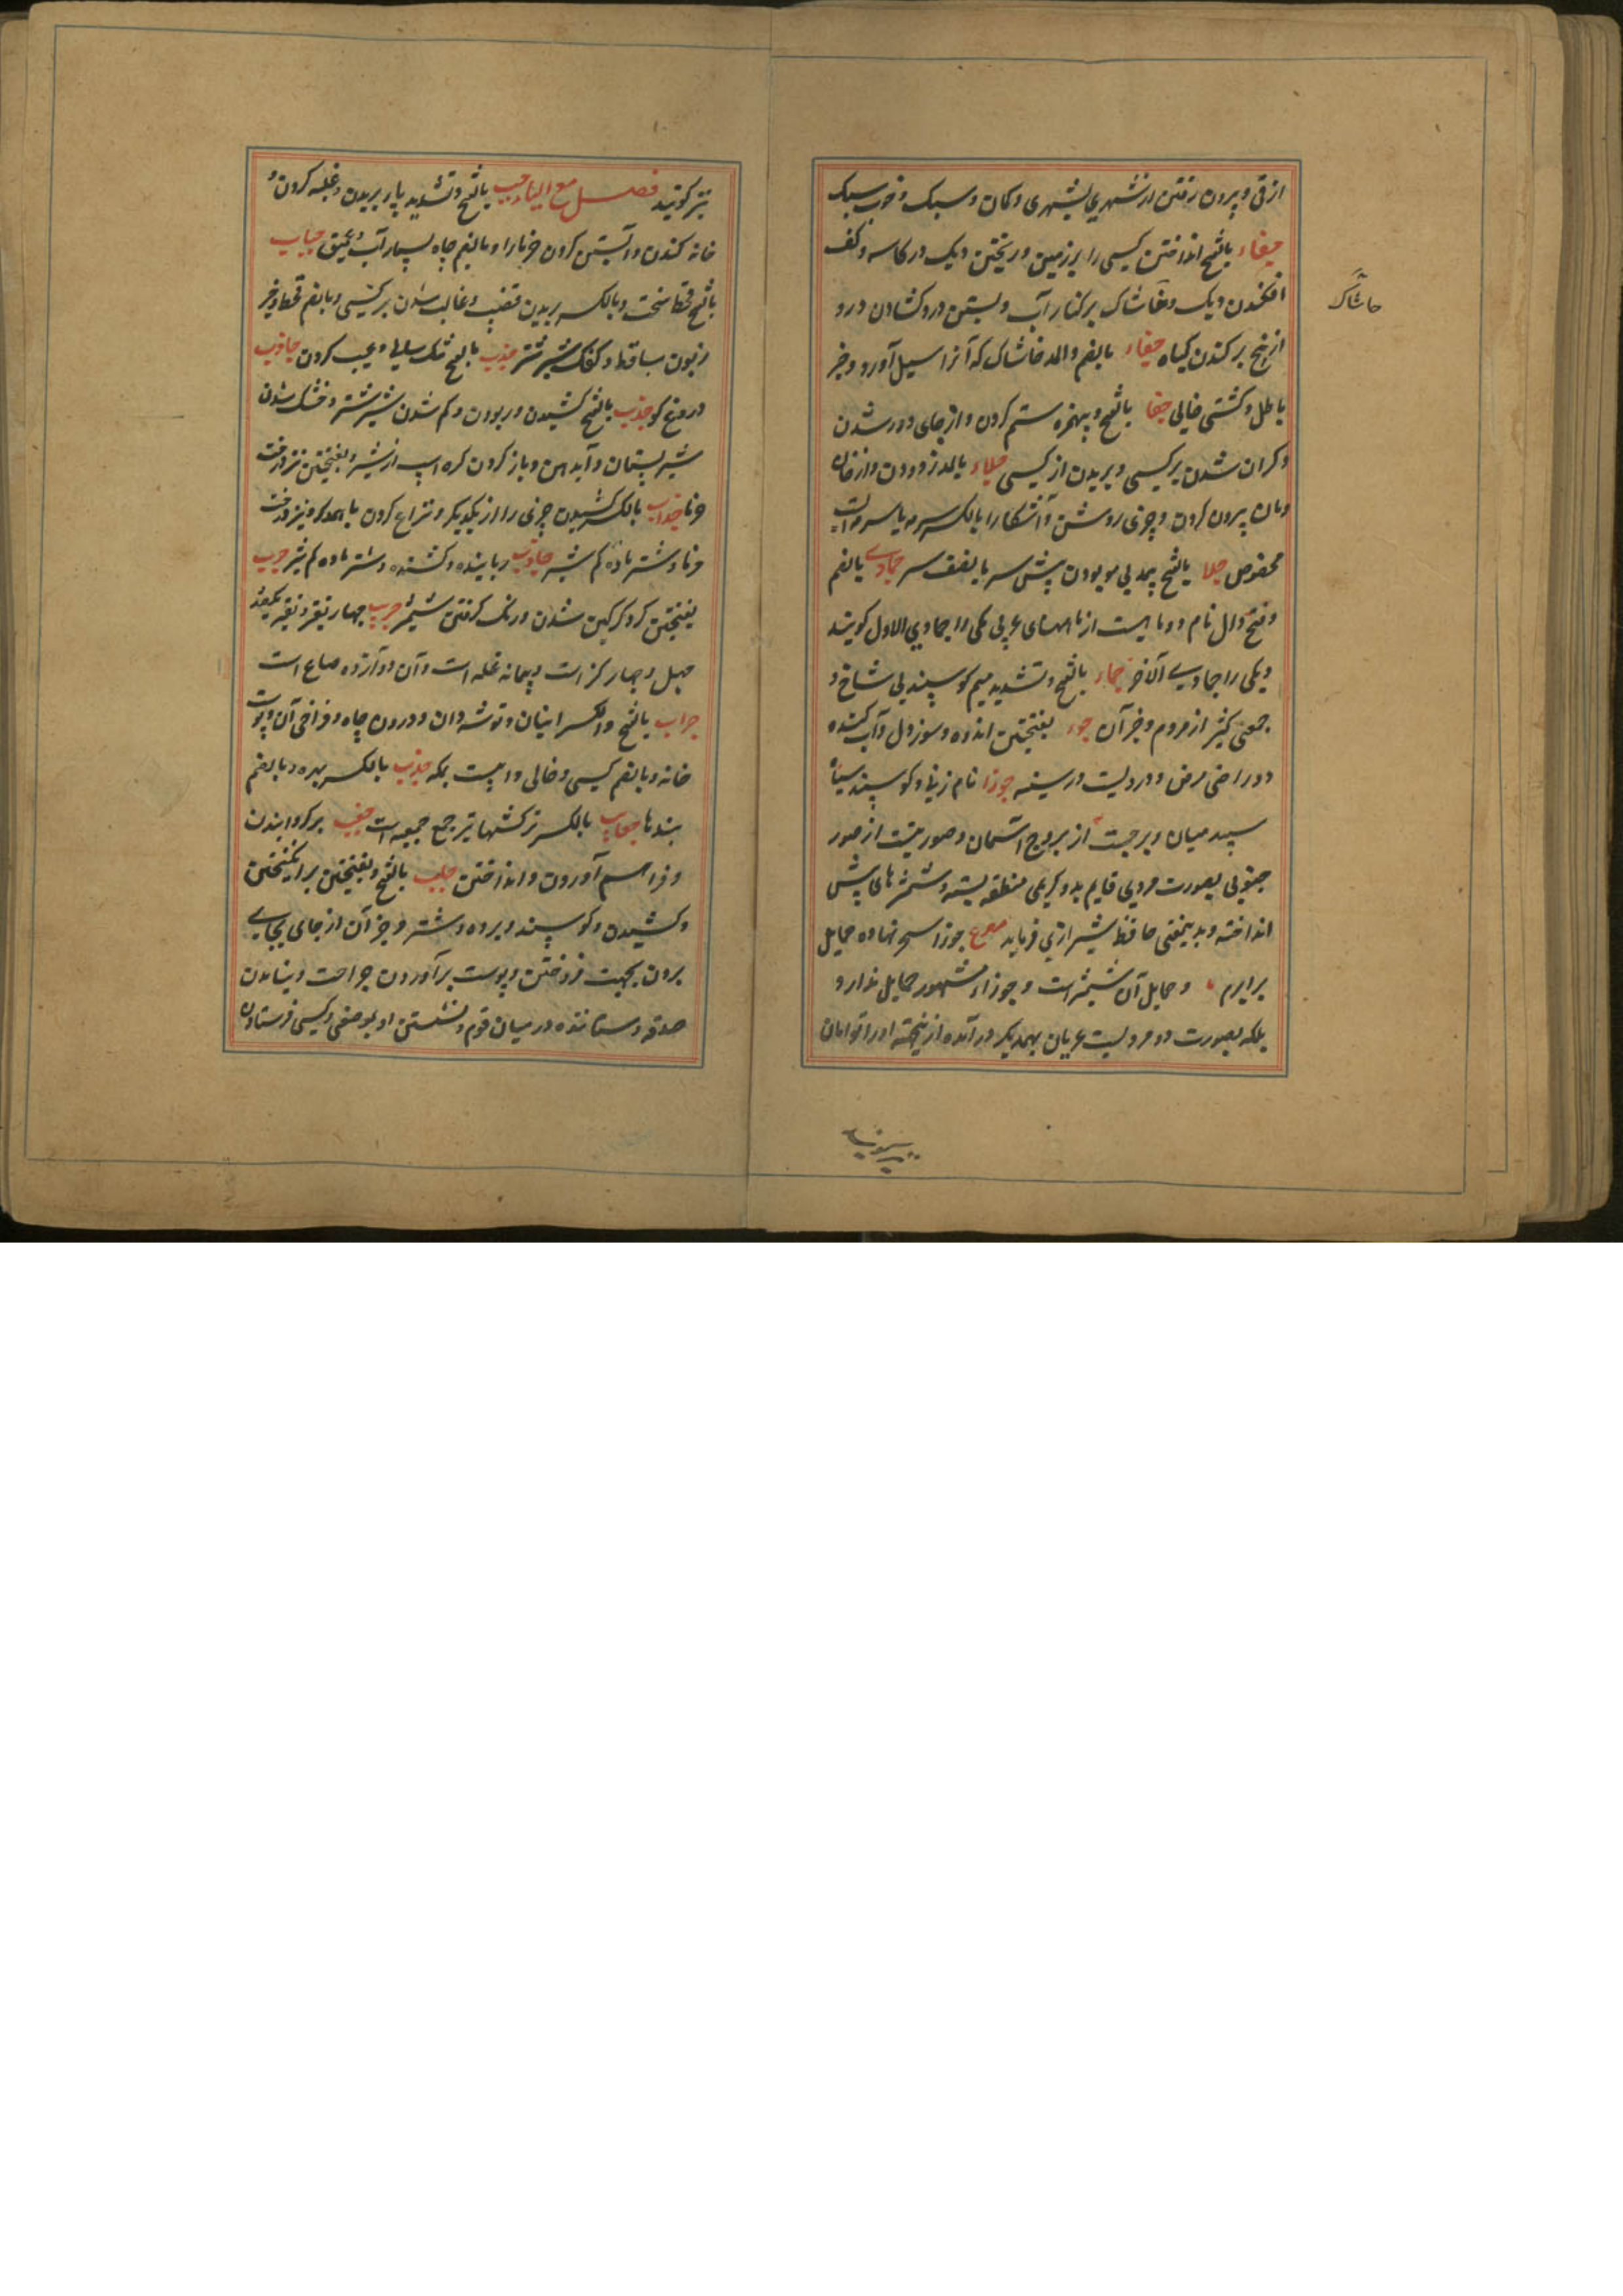 ازقی و بیرون رفتن از شهری بشهری و کان و سبک و خوب سبک
جفاء بالفتح انداختن کسی را بر زمین و ریختن دیک در کاسه و کف
افکندن دیک و خاشاک بر کنار آب و بستن در و کشادن در و
از بیخ بر کندن کیاه جفاء بالضم و المد خاشاک که آنرا سیل آورد و چیز
باطل و کشتی خالی جفا بالفتح و بیهمزه ستم کردن و از جای دور شدن
و کران شدن بر کسی و بریدن از کسی جلاء بالمد زدودن و از خان
ومان بیرون کردن و چیزی روشن و آشکارا بالکسر سرمه یا سرمه ایست
مخصوص جلا بالفتح بیمد بی مو بودن پیش سر یا نصف سر جمادی بالضم
و فتح دال نام دو ماهست از ماههای عربی یکی را جمادی الاول کویند
و یکی را جمادی الآخر جماء بالفتح و تشدید میم کوسپند بی شاخ و
جمعی کثیر از مردم و جز آن جوء بفتحتین اندوه و سوز دل و آب کنده
و درازی مرض و دردیست در سینه جوزا نام زنی و کوسپند سیاه
سپید میان و برجیست از بروج آسمان و صورتیست از صور
جنوبی بصورت مردی قایم بدو کرسی منطقه بسته و شمشیر های پیش
انداخته و بدینمعنی حافظ شیرازی فرماید مصرع جوزا سحر نهاده حمایل
برابرم و حمایل آن شمشیر است و جوزاء مشهور حمایل ندارد
بلکه بصورت دو مردیست عریان بهمدیکر در آمده ازینجهته او را توامان
خاشاک
نیز کویند فصل مع الباء جب بالفتح و تشدید باء بریدن و غلبه کردن و
خانه کندن و آبستن کردن خرما را و بالضم چاه بسیار آب و عمیق جباب
بالفتح قحط سخت و بالکسر بریدن قضیب و غالب شدن بر کسی و بالضم قحط و چیز
زبون ساقط و کفک شیر شتر جدب بالفتح تنک سالی و عیب کردن جادب
دروغ کو جذب بالفتح کشیدن و ربودن و کم شدن شیر شتر و خشک شدن
شیر پستان و آب دهن و باز کردن کره اسپ از شیر و بفتحتین نز درخت
خرما جذاب بالکسر کشیدن چیزی را از یکدیکر و نزاع کردن باهمدکر و نیز درخت
خرما و شتر ماده کم شیر جاذب رباینده و کشنده و شتر ماده کم شیر جرب
بفتحتین کر و کرکین شدن و زنک کرفتن شمشیر جریب چهار نفیز و نفیز یکصد
چهل و چهار کز است و پیمانه غله است و آن دوازده صاع است
جراب بالفتح و الکسر انبان و توشه دان و درون چاه و فراخی آن و پوست
خایه و بالضم کسی و خالی و ادیست بمکه جذب بالکسر بهره و بالضم
بندها جعاب بالکسر ترکشها تیر جمع جعبه است جعب بر کردانیدن
و فراهم آوردن و انداختن جلب بالفتح و بفتحتین بر انکیختن
و کشیدن و کوسپند و برده و شتر و جز آن از جای بجایی
بردن بجهت فروختن و پوست بر آوردن جراحت و ستاندن
صدقه و ستاننده در میان قوم و نشستن او بموضعی و کسی فرستادن